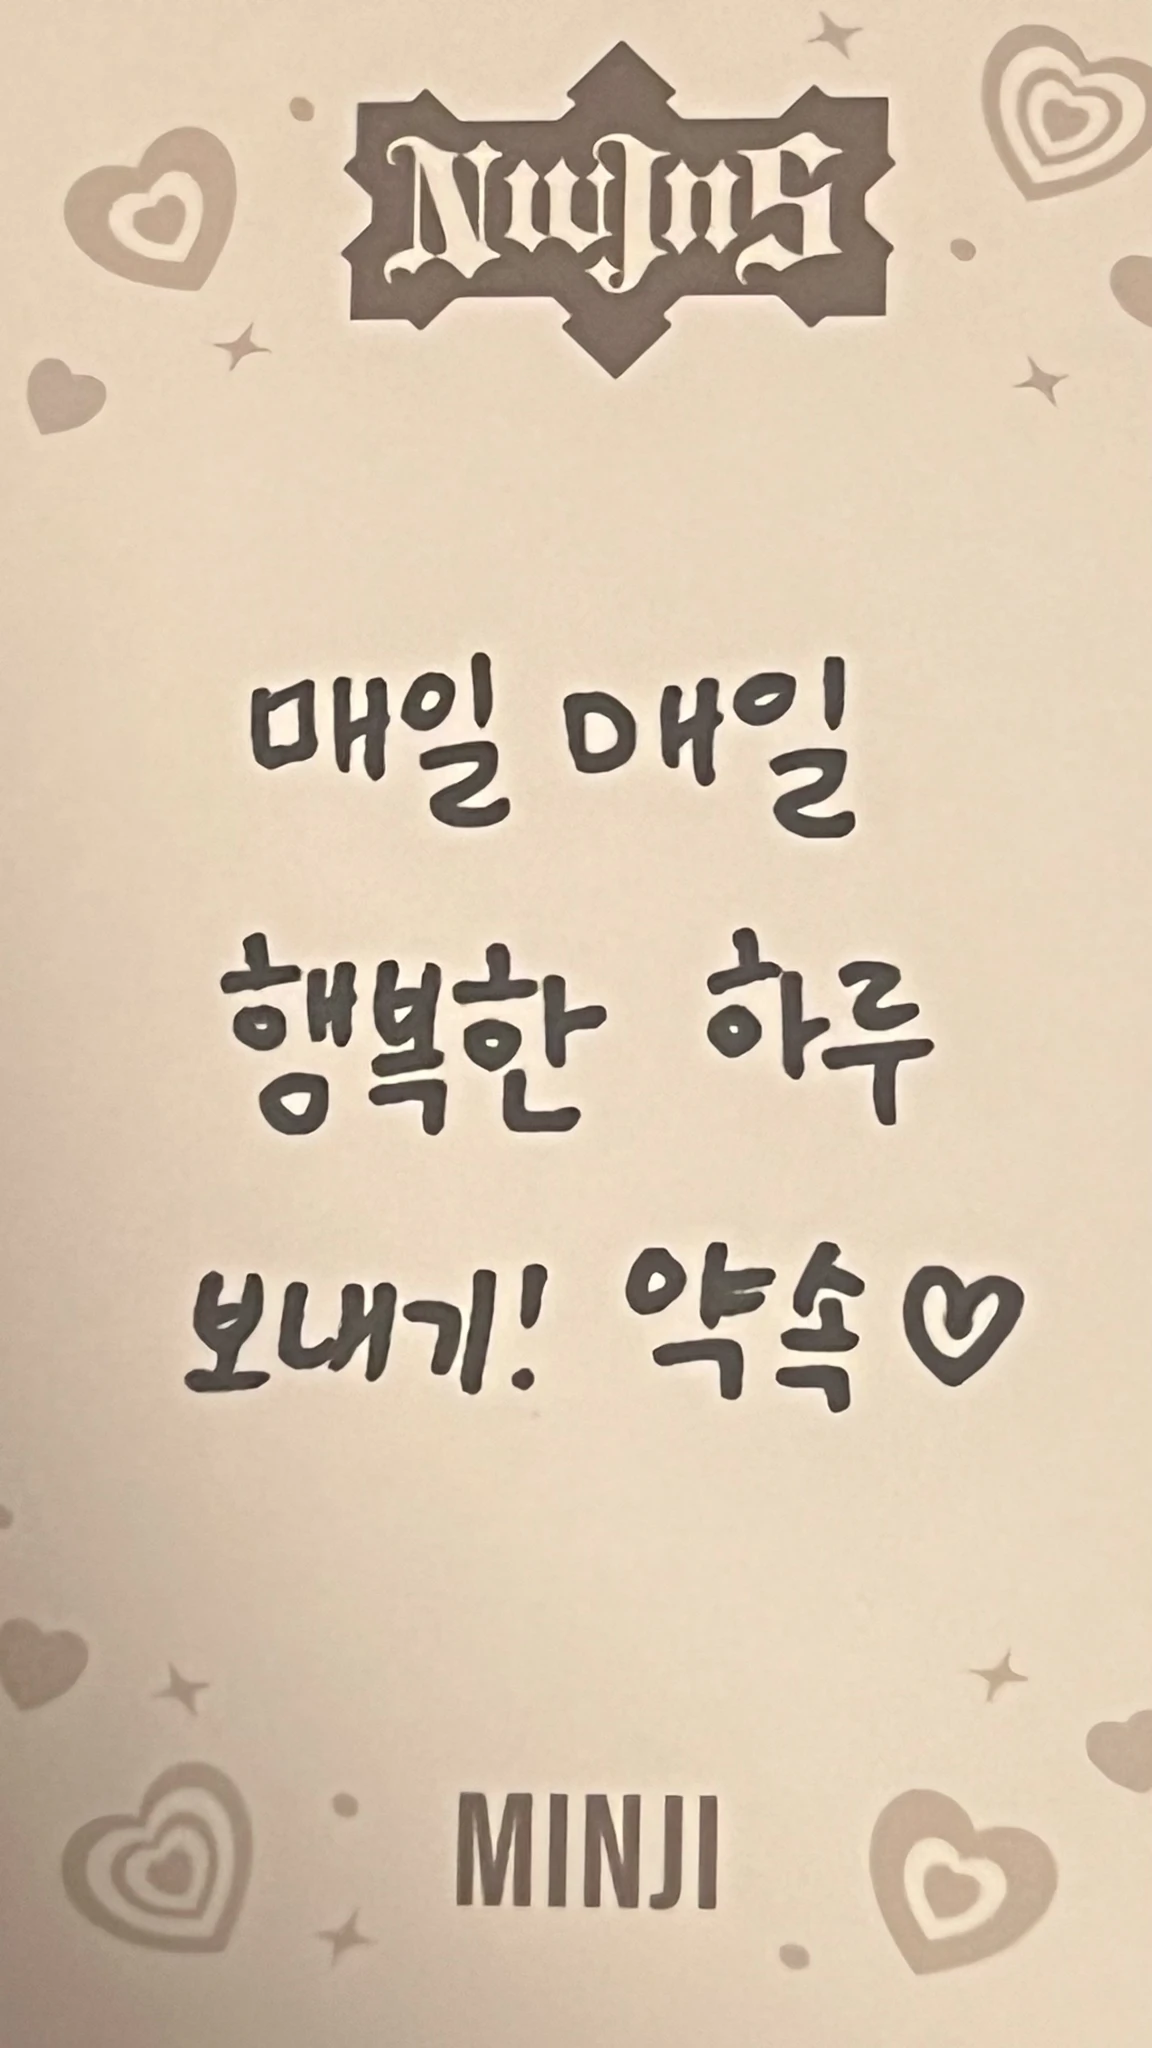 NwJnS
매일 매일
행복한 하루
보내기! 약속♡
MINJI